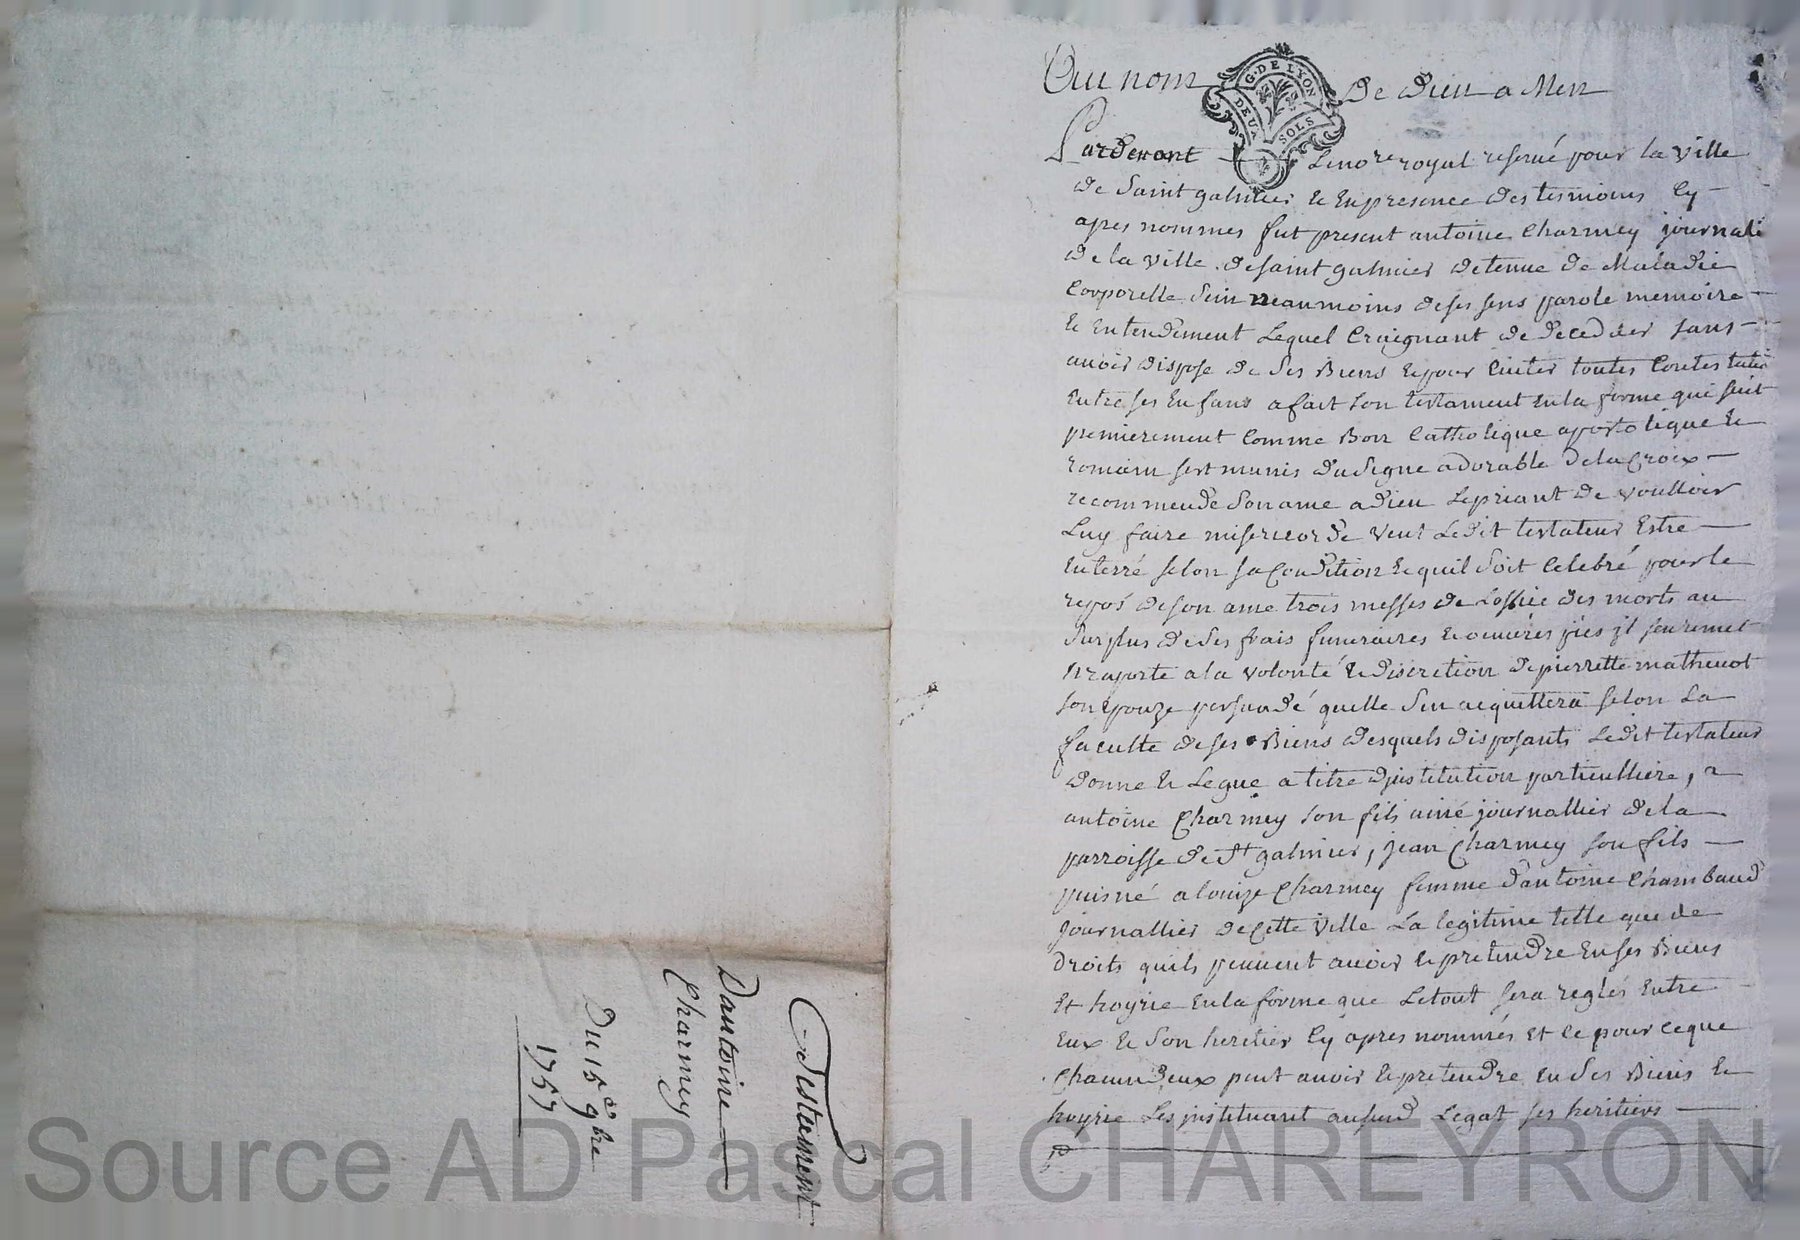 Testament
Dantoine
Charmey
Du 15e 9bre
1757
Au nom De Dieu a Men
G. DE LYON
DEUX SOLS
Pardevant Le nore royal reservé pour la ville
de Saint galmier & En presence des tesmoins Cy
apres nommes fut present antoine Charmey journali
de la ville de saint galmier detenue de Maladie
Corporelle Sein neaumoins de ses sens parole memoire
& Entendement Lequel Craignant de deceder sans
avoir dispose de Ses Biens & pour Eviter toutes Contestatio
Entre ses Enfans a fait son testament En la forme que suit
premierement Comme Bon Catholique apostolique &
romain sest munis du Signe adorable de la Croix
recommende Son ame a Dieu Le priant de voulloir
Luy faire misericorde veut Ledit testateur Estre
Enterré selon sa Condition & quil Soit Celebré pour le
repos de son ame trois messes de Loffice des morts au
Surplus de Ses frais funeraires & oeuvres pies jl sen remet
& raporte a la volonté & discretion de pierrette mathevot
son Epouze persuadé quelle Sen aiquittera selon La
faculte de ses Biens desquels disposants Ledit testateur
donne & Legue a titre djnstitution particulliere, a
antoine Charmey son fils ainé journallier de la
parroisse de St galmier, jean Charmey son fils
puisné a louize Charmey femme dantoine Chambaud
journallier de Cette ville La legitime telle que de
droits quils peuvent avoir & pretendre En ses Biens
Et hoyrie En la forme que Letout sera reglés Entre
Eux & Son heritier Cy apres nommés Et ce pour ceque
Chacun deux peut avoir & pretendre En Ses Biens &
hoyrie Les jnstituant audit Legat ses heritiers
Source AD Pascal CHAREYRON